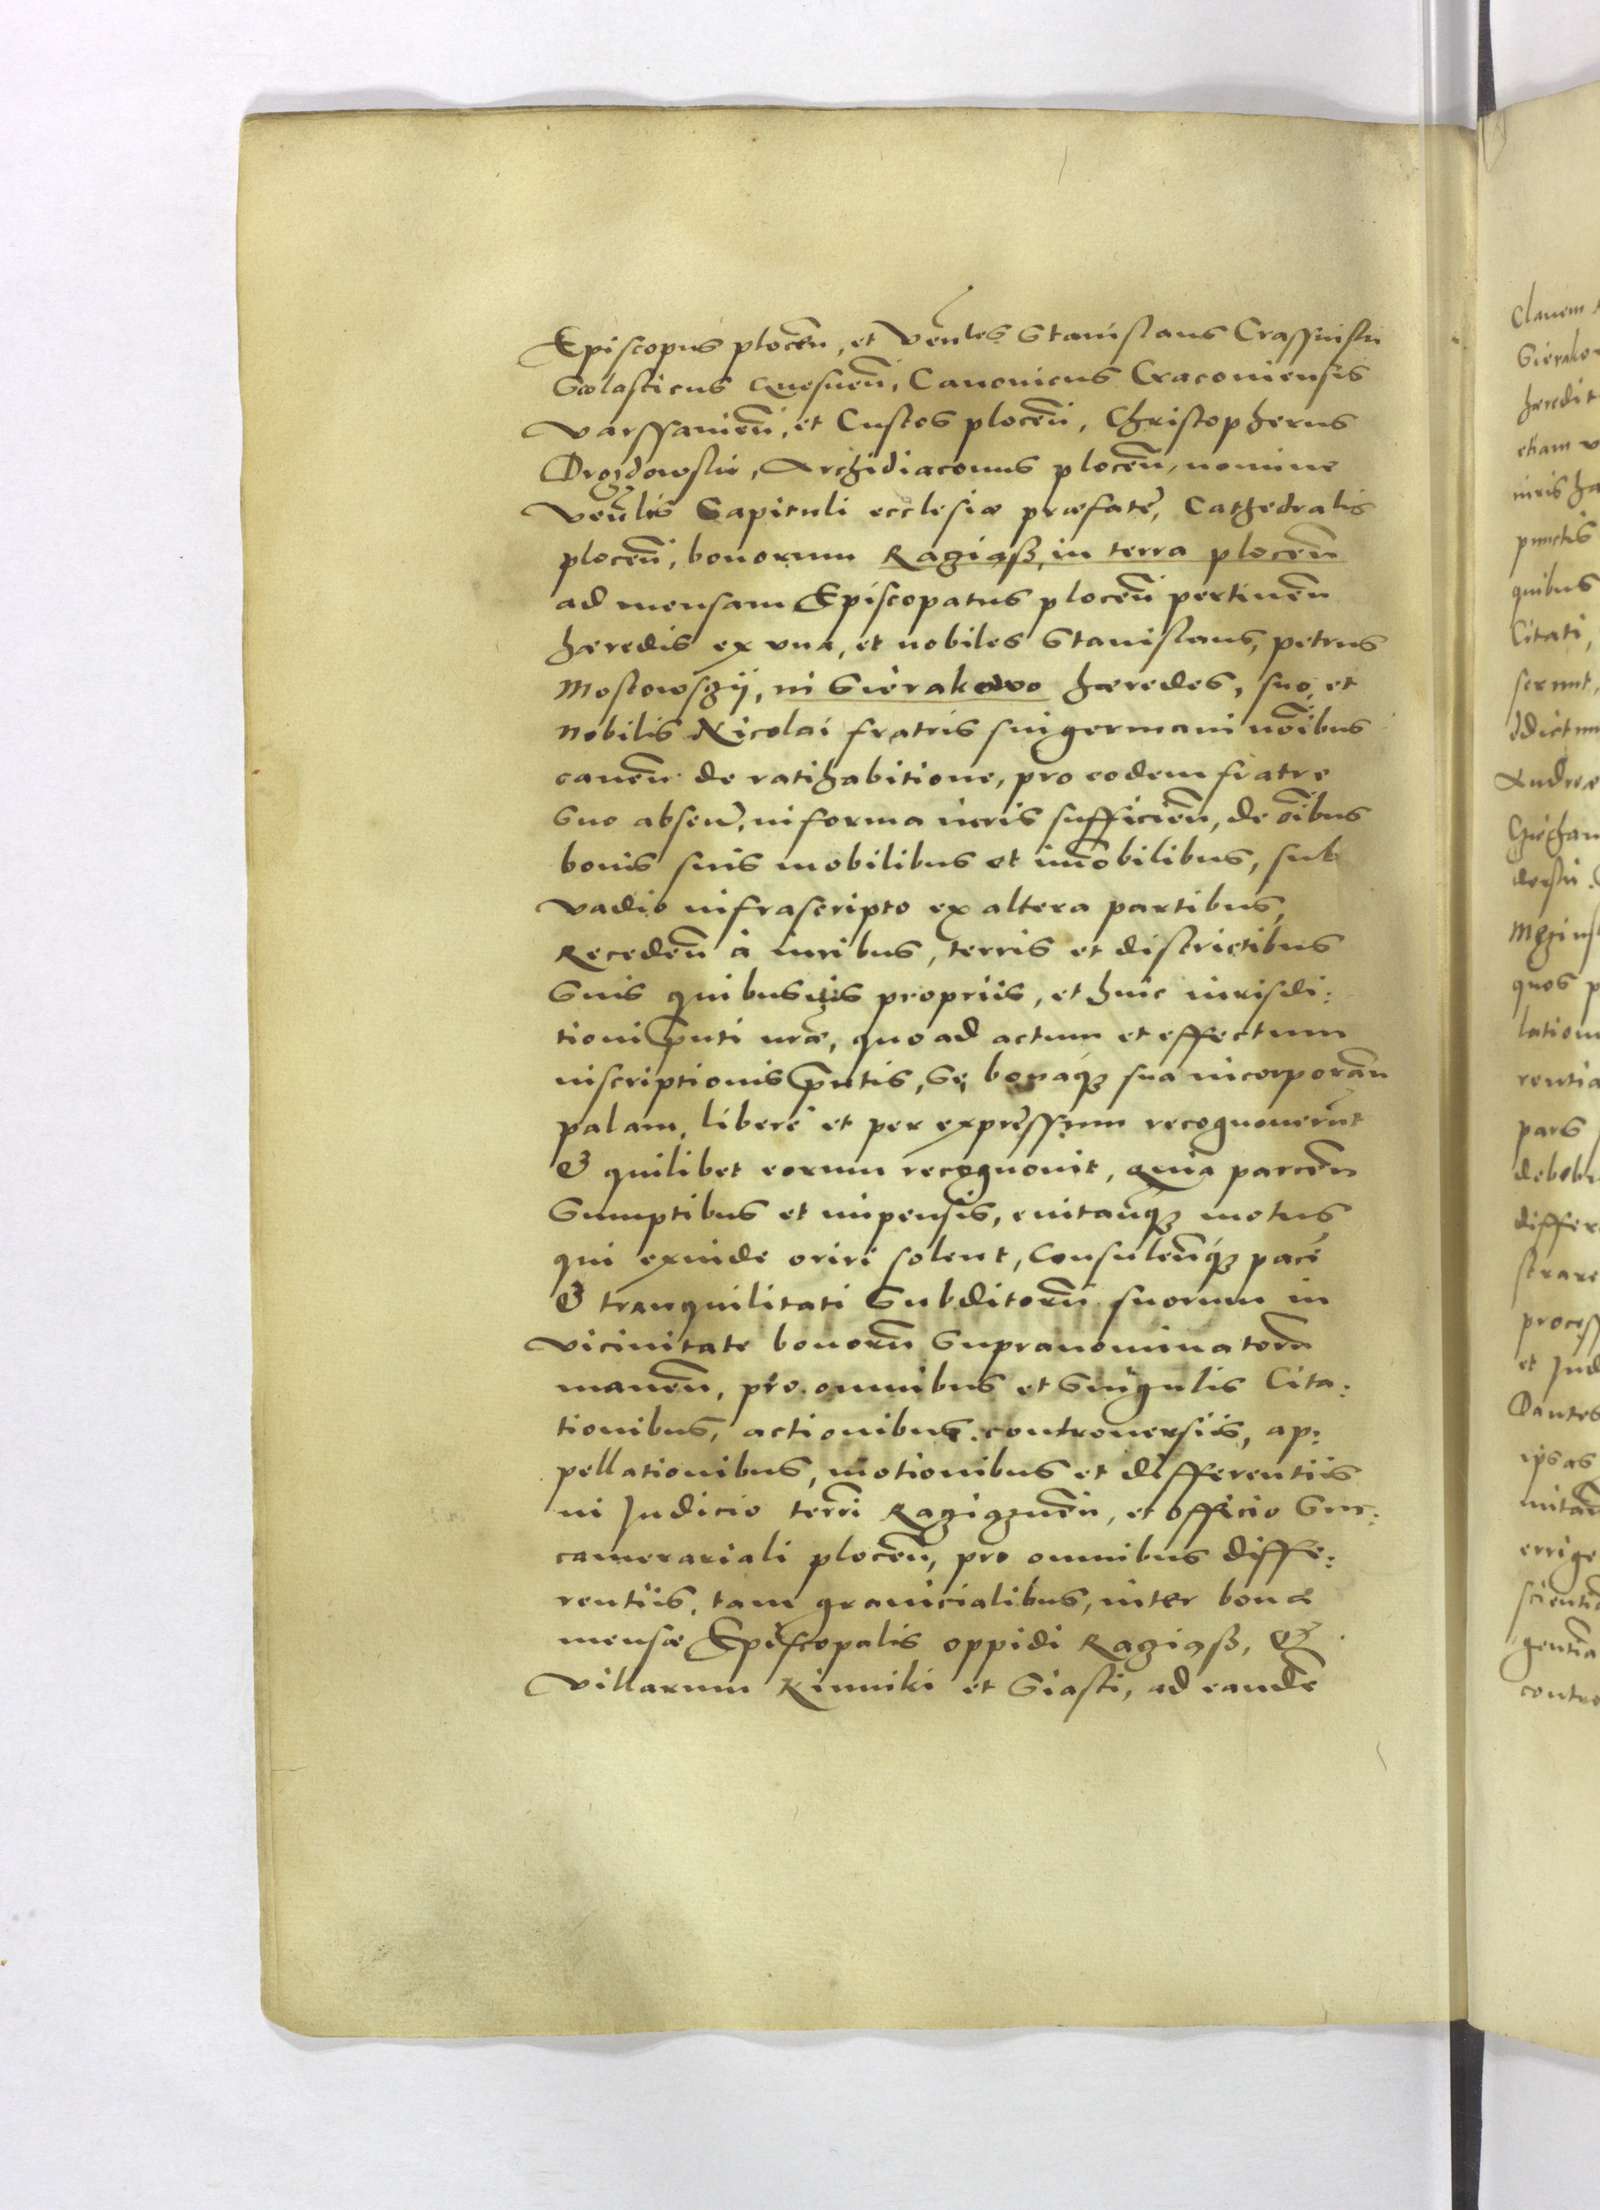 Episcopus plocen̄, et Ven̄les Stanislaus Crassinski
Scolasticus Gnesnen̄, Canonicus Cracouiensis
Varssauien̄, et Custos plocen̄, Christopherus
Drozdowski, Archidiaconus plocen̄, nomine
Ven̄lis Capituli ecclesiæ præfate, Cathedralis
plocen̄, bonorum Raziąß, in terra plocen̄
ad mensam Episcopatus plocen̄ pertinen̄
hæredis ex vna, et nobiles Stanislaus, petrus
Mostowszÿ, in Sierakowo hæredes, suo, et
Nobilis Nicolai fratris sui germani nōibus
cauen̄ de ratihabitione, pro eodem fratre
Suo absen̄, in forma iuris sufficien̄, de oībus
bonis suis mobilibus et im̄obilibus, sub
vadio infrascripto ex altera partibus,
Receden̄ à iuribus, terris et districtibus
Suis quibusuis propriis, et huic iurisdi:
tioni pn̄ti nr̄æ, quo ad actum et effectum
inscriptionis pn̄tis, Se bonaq3 sua incorporān
palam, liberè et per expressum recognouerūt
& quilibet eorum recognouit, Quia parcen̄
Sumptibus et impensis, euitan̄q3 motus
qui exinde oriri solent, Consulen̄q3 paci
& tranquilitati Subditorū suorum in
vicinitate bonorū Supranominatorū
manen̄, pro omnibus et Singulis Cita:
tionibus, actionibus controuersiis, ap:
pellationibus, motionibus et differentiis
in Judicio terrī Raziąznen̄, et officio Suc:
camerariali plocen̄, pro omnibus diffe:
rentiis, tam granicialibus, inter bona
mensæ Episcopalis oppidi Raziąß, &
Villarum Kinniki et Siasti, ad eandē
Clauem
hæredit
etiam v
iuris ha
punctis
quibus
Citati,
Andreæ
quos p
lation
rentia
pars
differ
proces
et Jud
Dantes
ipsas
errige
contro